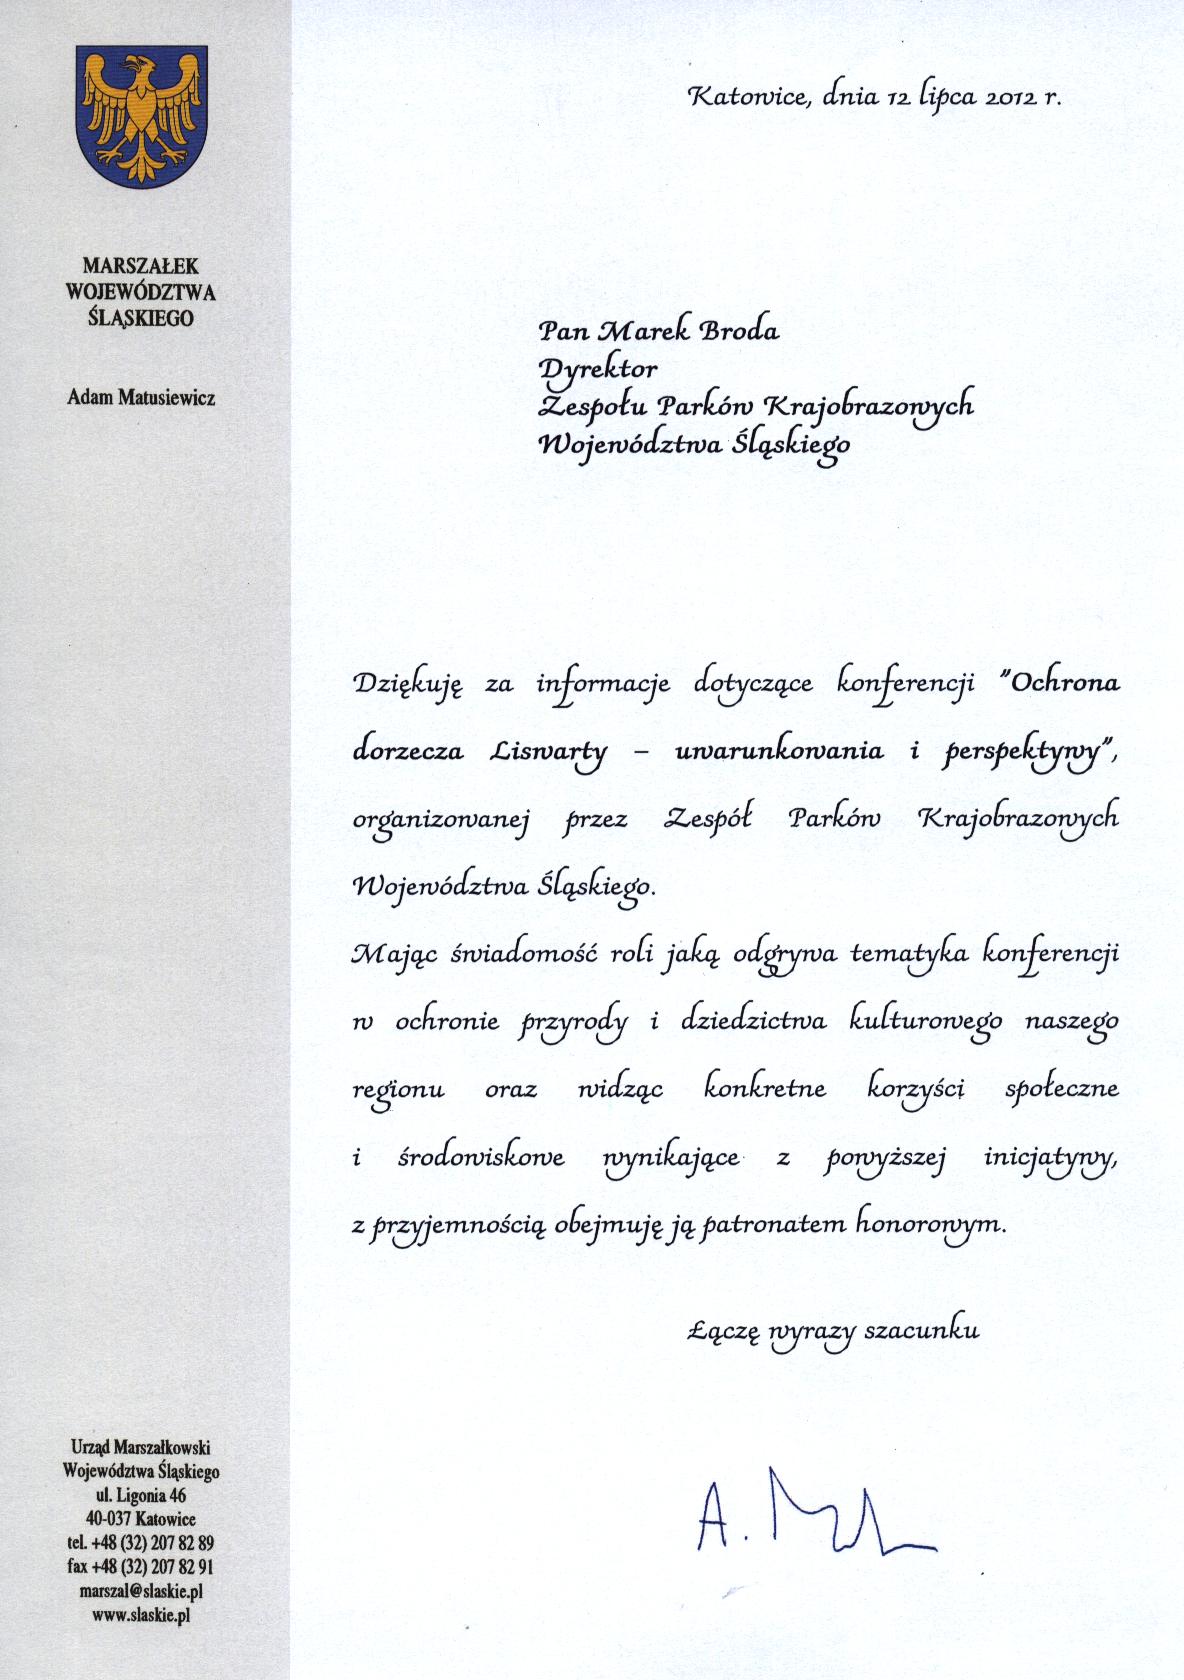 MARSZAŁEK
WOJEWÓDZTWA
ŚLĄSKIEGO
Adam Matusiewicz
Katowice, dnia 12 lipca 2012 r.
Pan Marek Broda
Dyrektor
Zespołu Parków Krajobrazowych
Województwa Śląskiego
Dziękuję za informacje dotyczące konferencji "Ochrona
dorzecza Liswarty – uwarunkowania i perspektywy",
organizowanej przez Zespół Parków Krajobrazowych
Województwa Śląskiego.
Mając świadomość roli jaką odgrywa tematyka konferencji
w ochronie przyrody i dziedzictwa kulturowego naszego
regionu oraz widząc konkretne korzyści społeczne
i środowiskowe wynikające z powyższej inicjatywy,
z przyjemnością obejmuję ją patronatem honorowym.
Łączę wyrazy szacunku
Urząd Marszałkowski
Województwa Śląskiego
ul. Ligonia 46
40-037 Katowice
tel. +48 (32) 207 82 89
fax +48 (32) 207 82 91
marszal@slaskie.pl
www.slaskie.pl